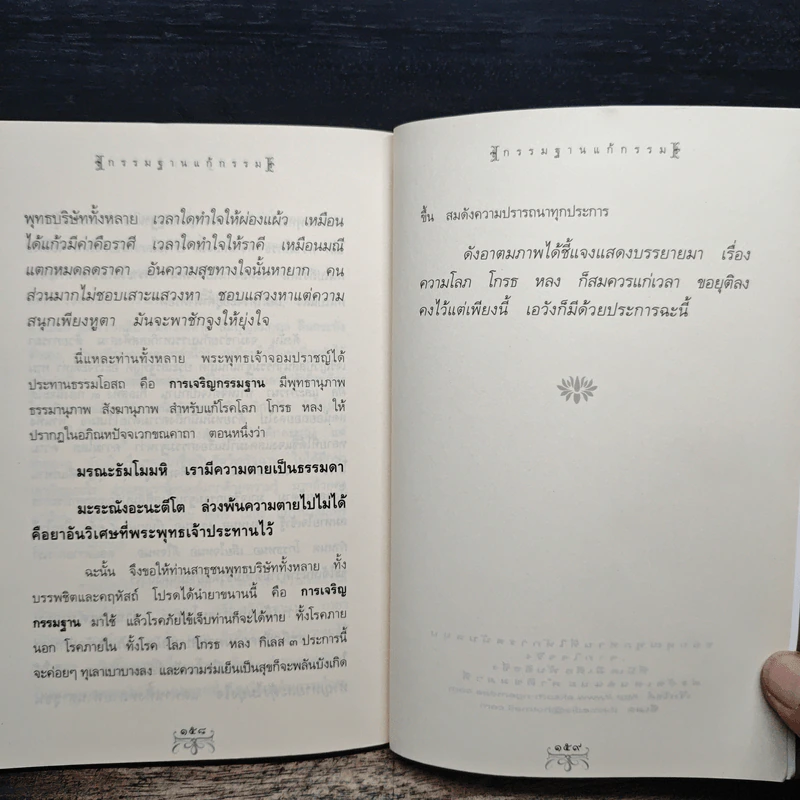 กรรมฐานแก้กรรม
พุทธบริษัททั้งหลาย เวลาใดทำใจให้ผ่องแผ้ว เหมือน
ได้แก้วมีค่าคือราศี เวลาใดทำใจให้ราคี เหมือนมณี
แตกหมดลดราคา อันความสุขทางใจนั้นหายาก คน
ส่วนมากไม่ชอบเสาะแสวงหา ชอบแสวงหาแต่ความ
สนุกเพียงหูตา มันจะพาชักจูงให้ยุ่งใจ
นี่แหละท่านทั้งหลาย พระพุทธเจ้าจอมปราชญ์ได้
ประทานธรรมโอสถ คือ การเจริญกรรมฐาน มีพุทธานุภาพ
ธรรมานุภาพ สังฆานุภาพ สำหรับแก้โรคโลภ โกรธ หลง ให้
ปรากฏในอภิณหปัจจเวกขณคาถา ตอนหนึ่งว่า
มรณะธัมโมมหิ เรามีความตายเป็นธรรมดา
มะระณังอะนะตีโต ล่วงพ้นความตายไปไม่ได้
คือยาอันวิเศษที่พระพุทธเจ้าประทานไว้
ฉะนั้น จึงขอให้ท่านสาธุชนพุทธบริษัททั้งหลาย ทั้ง
บรรพชิตและคฤหัสถ์ โปรดได้นำยาขนานนี้ คือ การเจริญ
กรรมฐาน มาใช้ แล้วโรคภัยไข้เจ็บท่านก็จะได้หาย ทั้งโรคภาย
นอก โรคภายใน ทั้งโรค โลภ โกรธ หลง กิเลส ๓ ประการนี้
จะค่อยๆ ทุเลาเบาบางลง และความร่มเย็นเป็นสุขก็จะพลันบังเกิด
๑๕๘
กรรมฐานแก้กรรม
ขึ้น สมดังความปรารถนาทุกประการ
ดังอาตมภาพได้ชี้แจงแสดงบรรยายมา เรื่อง
ความโลภ โกรธ หลง ก็สมควรแก่เวลา ขอยุติลง
คงไว้แต่เพียงนี้ เอวังก็มีด้วยประการฉะนี้
๑๕๙